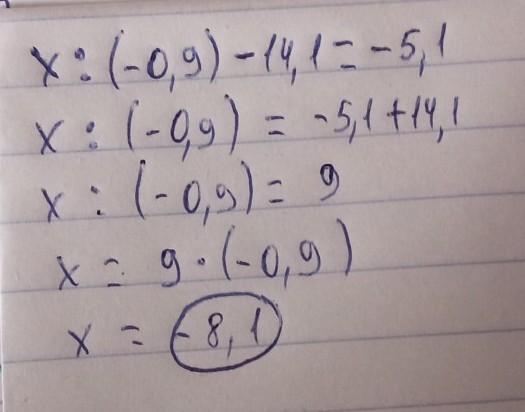 x : (-0,9) - 14,1 = -5,1
x : (-0,9) = -5,1 + 14,1
x : (-0,9) = 9
x = 9 · (-0,9)
x = -8,1